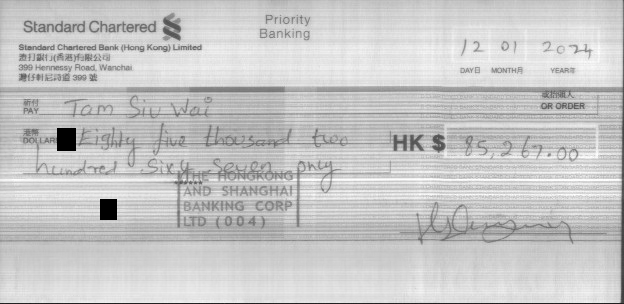 Standard Chartered
Priority
Banking
Standard Chartered Bank (Hong Kong) Limited
渣打銀行(香港)有限公司
399 Hennessy Road, Wanchai
灣仔軒尼詩道 399 號
12 01 2024
DAY日 MONTH月 YEAR年
祈付
PAY
Tam Siu Wai
或指揮人
OR ORDER
港幣
DOLLARS
Eighty five thousand two
hundred Sixty Seven only
HK $ 85,267.00
THE HONGKONG
AND SHANGHAI
BANKING CORP
LTD (004)